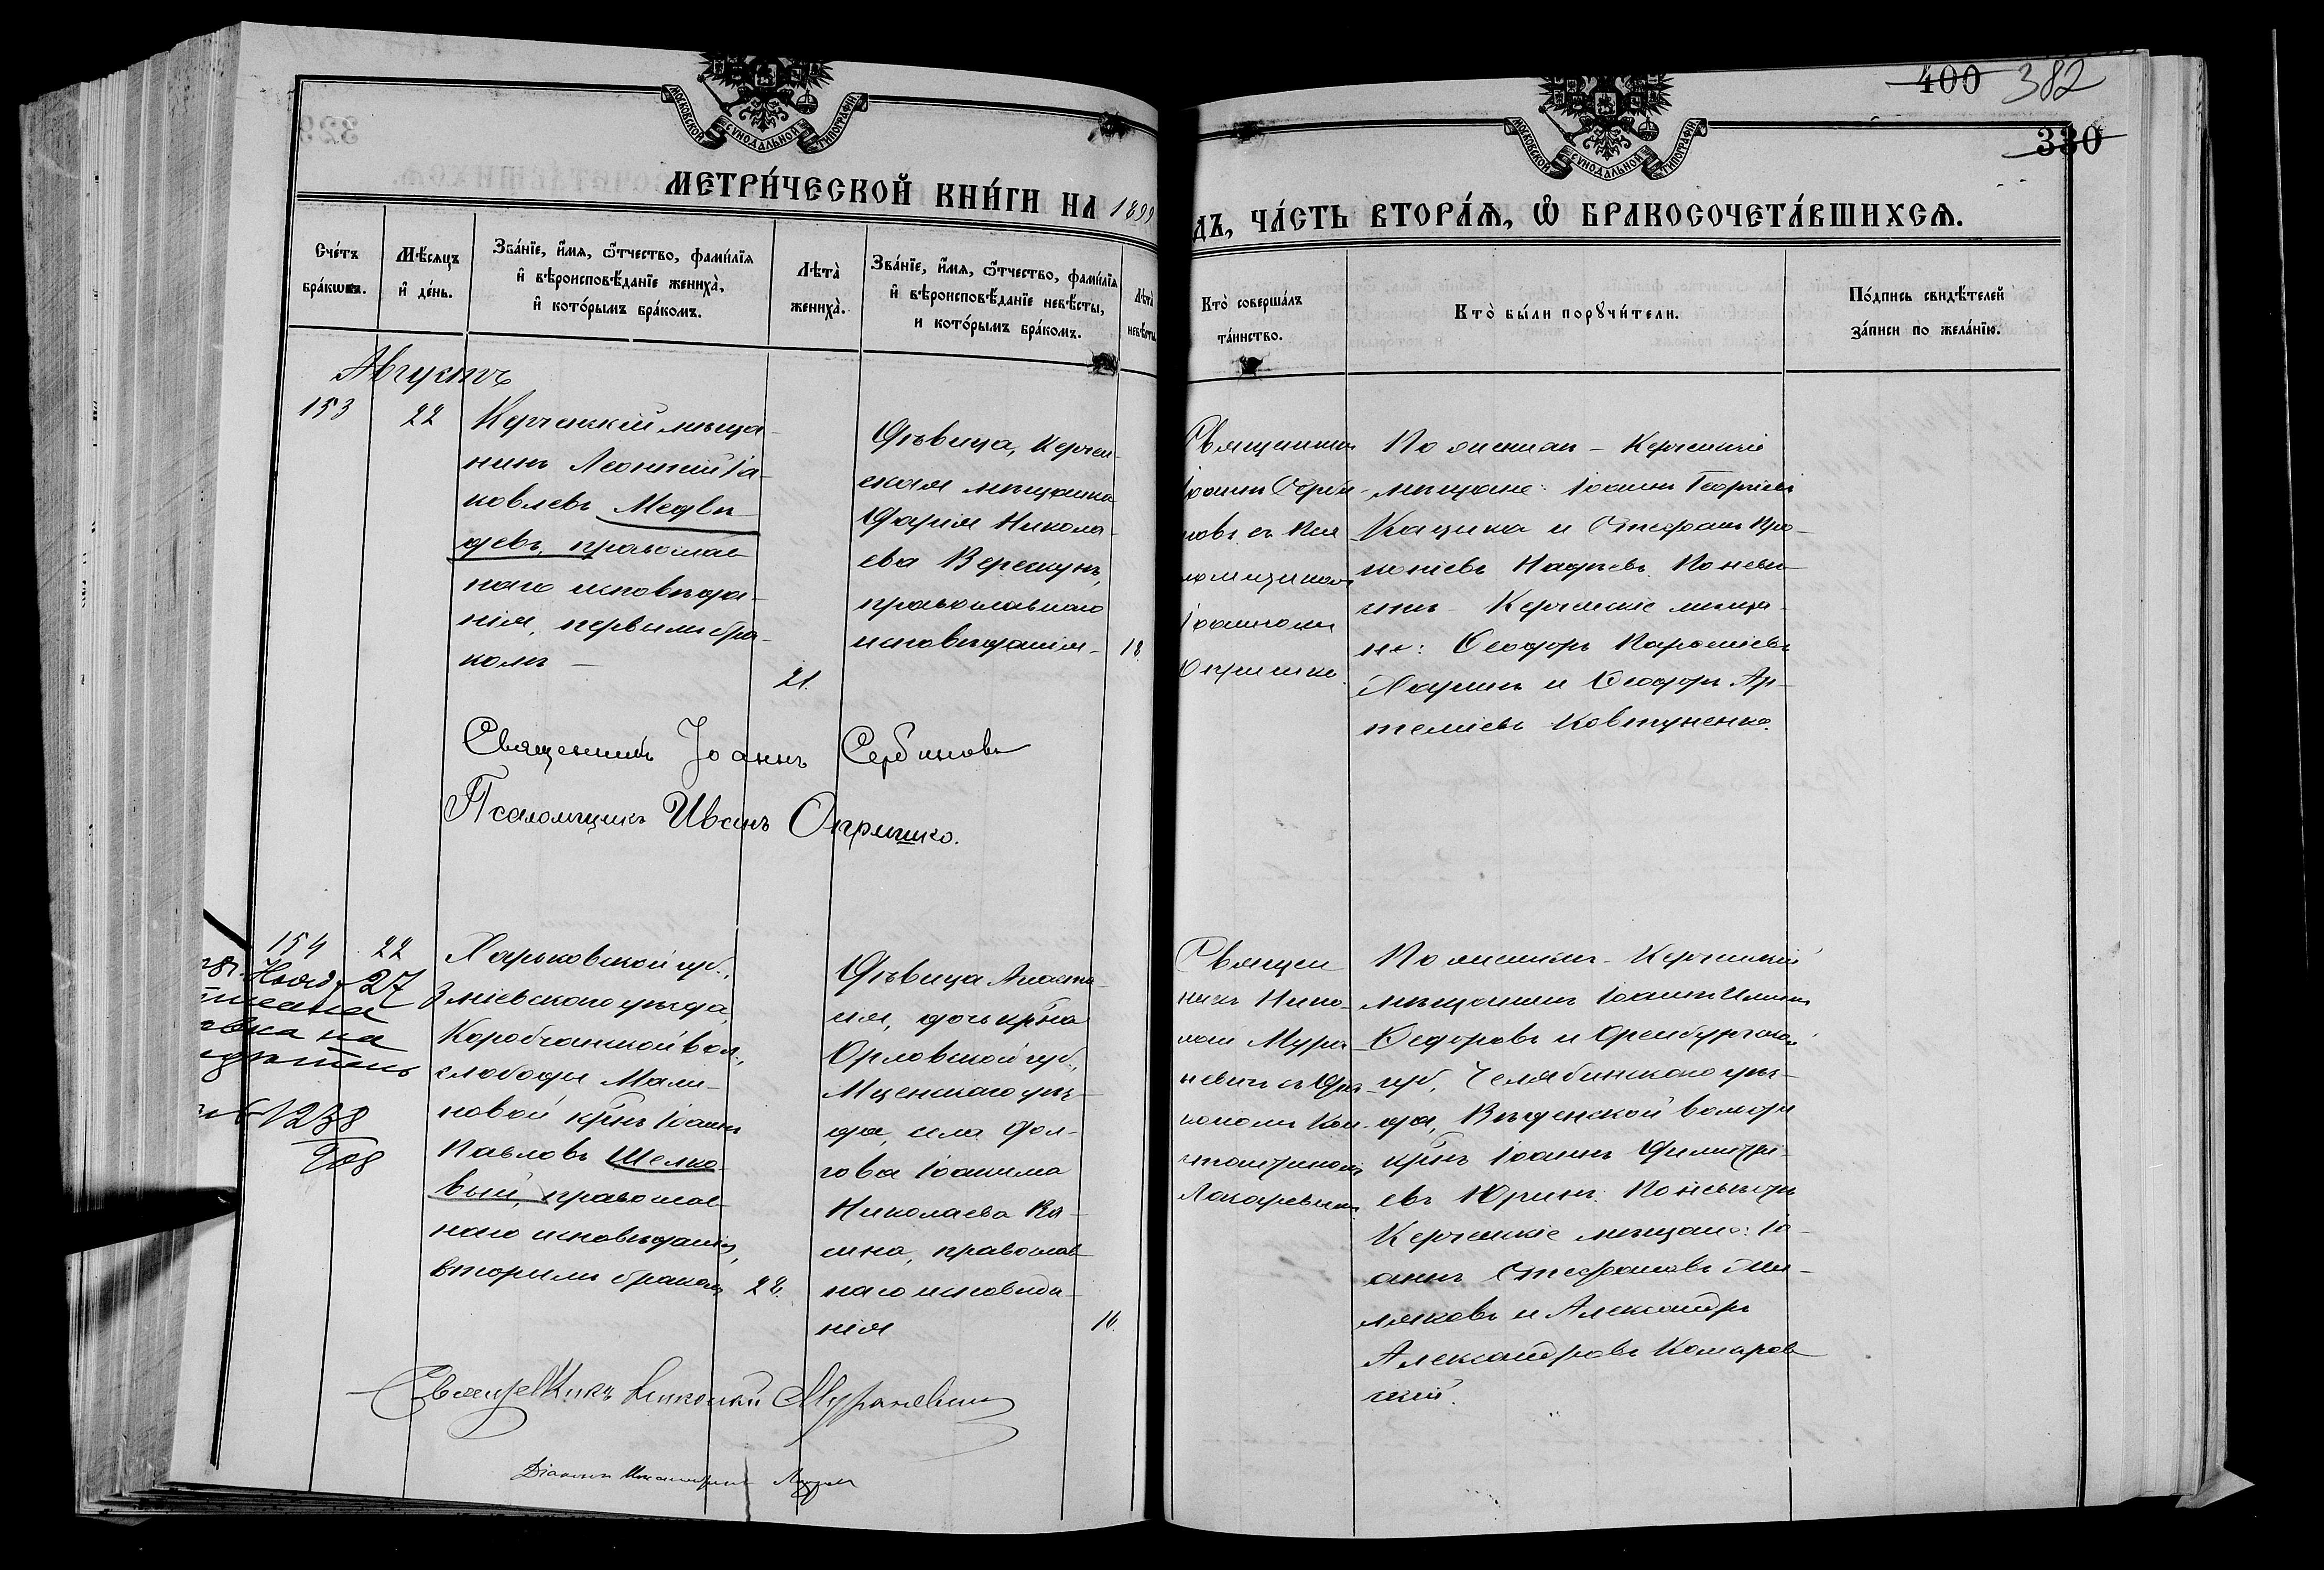 400 382
330
МОСКОВСКОЙ СѴНОДАЛЬНОЙ ТИПОГРАФІИ
МОСКОВСКОЙ СѴНОДАЛЬНОЙ ТИПОГРАФІИ
МЕТРИ́ЧЕСКОЙ КНИ́ГИ НА 1899
ДЪ, ЧА́СТЬ ВТОРА́Ѧ, Ѽ БРАКОСОЧЕТА́ВШИХСѦ.
Сче́тъ
бра́кѡвъ.
Мѣ́сяцъ
и҆ де́нь.
Зва́нїе, и҆́мя, ѻ҆́тчество, фами́лїя
и҆ вѣроисповѣ́данїе жениха̀,
и҆ кото́рымъ бра́комъ.
Лѣта̀
жениха̀.
Зва́нїе, и҆́мя, ѻ҆́тчество, фами́лїя
и҆ вѣроисповѣ́данїе невѣ́сты,
и кото́рымъ бра́комъ.
Лѣта̀
невѣ́сты
Кто̀ соверша́лъ
та́инство.
Кто̀ бы́ли порꙋчи́тели.
По́дпись свидѣ́телей
за́писи по жела́нїю.
Августъ
153
22
Керченскій мѣща-
нинъ Леонтій Іа-
ковлевъ Медвѣ-
девъ, православ-
наго исповѣда-
нія, первымъ бра-
комъ –
21.
Дѣвица, Керчен-
ская мѣщанка
Дарія Никола-
ева Верескунъ,
православнаго
исповѣданія –
18.
Священник
Іоаннъ Серби-
новъ съ Пса
ломщикомъ
Іоанномъ
Опришко.
По женихѣ – Керченскіе
мѣщане: Іоаннъ Георгіевъ
Кацика и Стефанъ Про-
копіевъ Надѣевъ. По невѣ-
стѣ – Керченскіе мѣща-
не: Ѳеодоръ
и Ѳеодоръ Ар-
темиевъ Ковтуненко.
Священникъ Іоаннъ Сербиновъ
Псаломщикъ Иванъ Опришко.
154
22
Нояб. 27
на
1238
908
Харьковской губ.,
Зміевскаго уѣзда,
Коробчанской вол.,
слободы Мали-
новой кр̃нъ Іоаннъ
Павловъ Шелко-
вый, православ-
наго исповѣданія,
вторымъ бракомъ
22.
Дѣвица Анаста-
сія, дочь кр̃на
Орловской губ.,
Мценскаго уѣз-
да, села Дол-
гова Іоакима
Николаева
православ-
наго исповѣда-
нія
16.
Священ
никъ Нико-
лай Мура
невич съ Діа-
кономъ Кон-
стантиномъ
По женихѣ – Керченскій
мѣщанинъ Іоаннъ Ильинъ
Ѳедоровъ и Оренбургской
губ., Челябинскаго уѣз-
да, Введенской волости
кр̃нъ Іоаннъ Димитрі-
евъ Юринъ. По невѣстѣ
Керченскіе мѣщане: Іо-
аннъ Стефановъ
и Александръ
Александровъ Комаров-
скій.
Священникъ Николай Мураневич
Діаконъ Константинъ